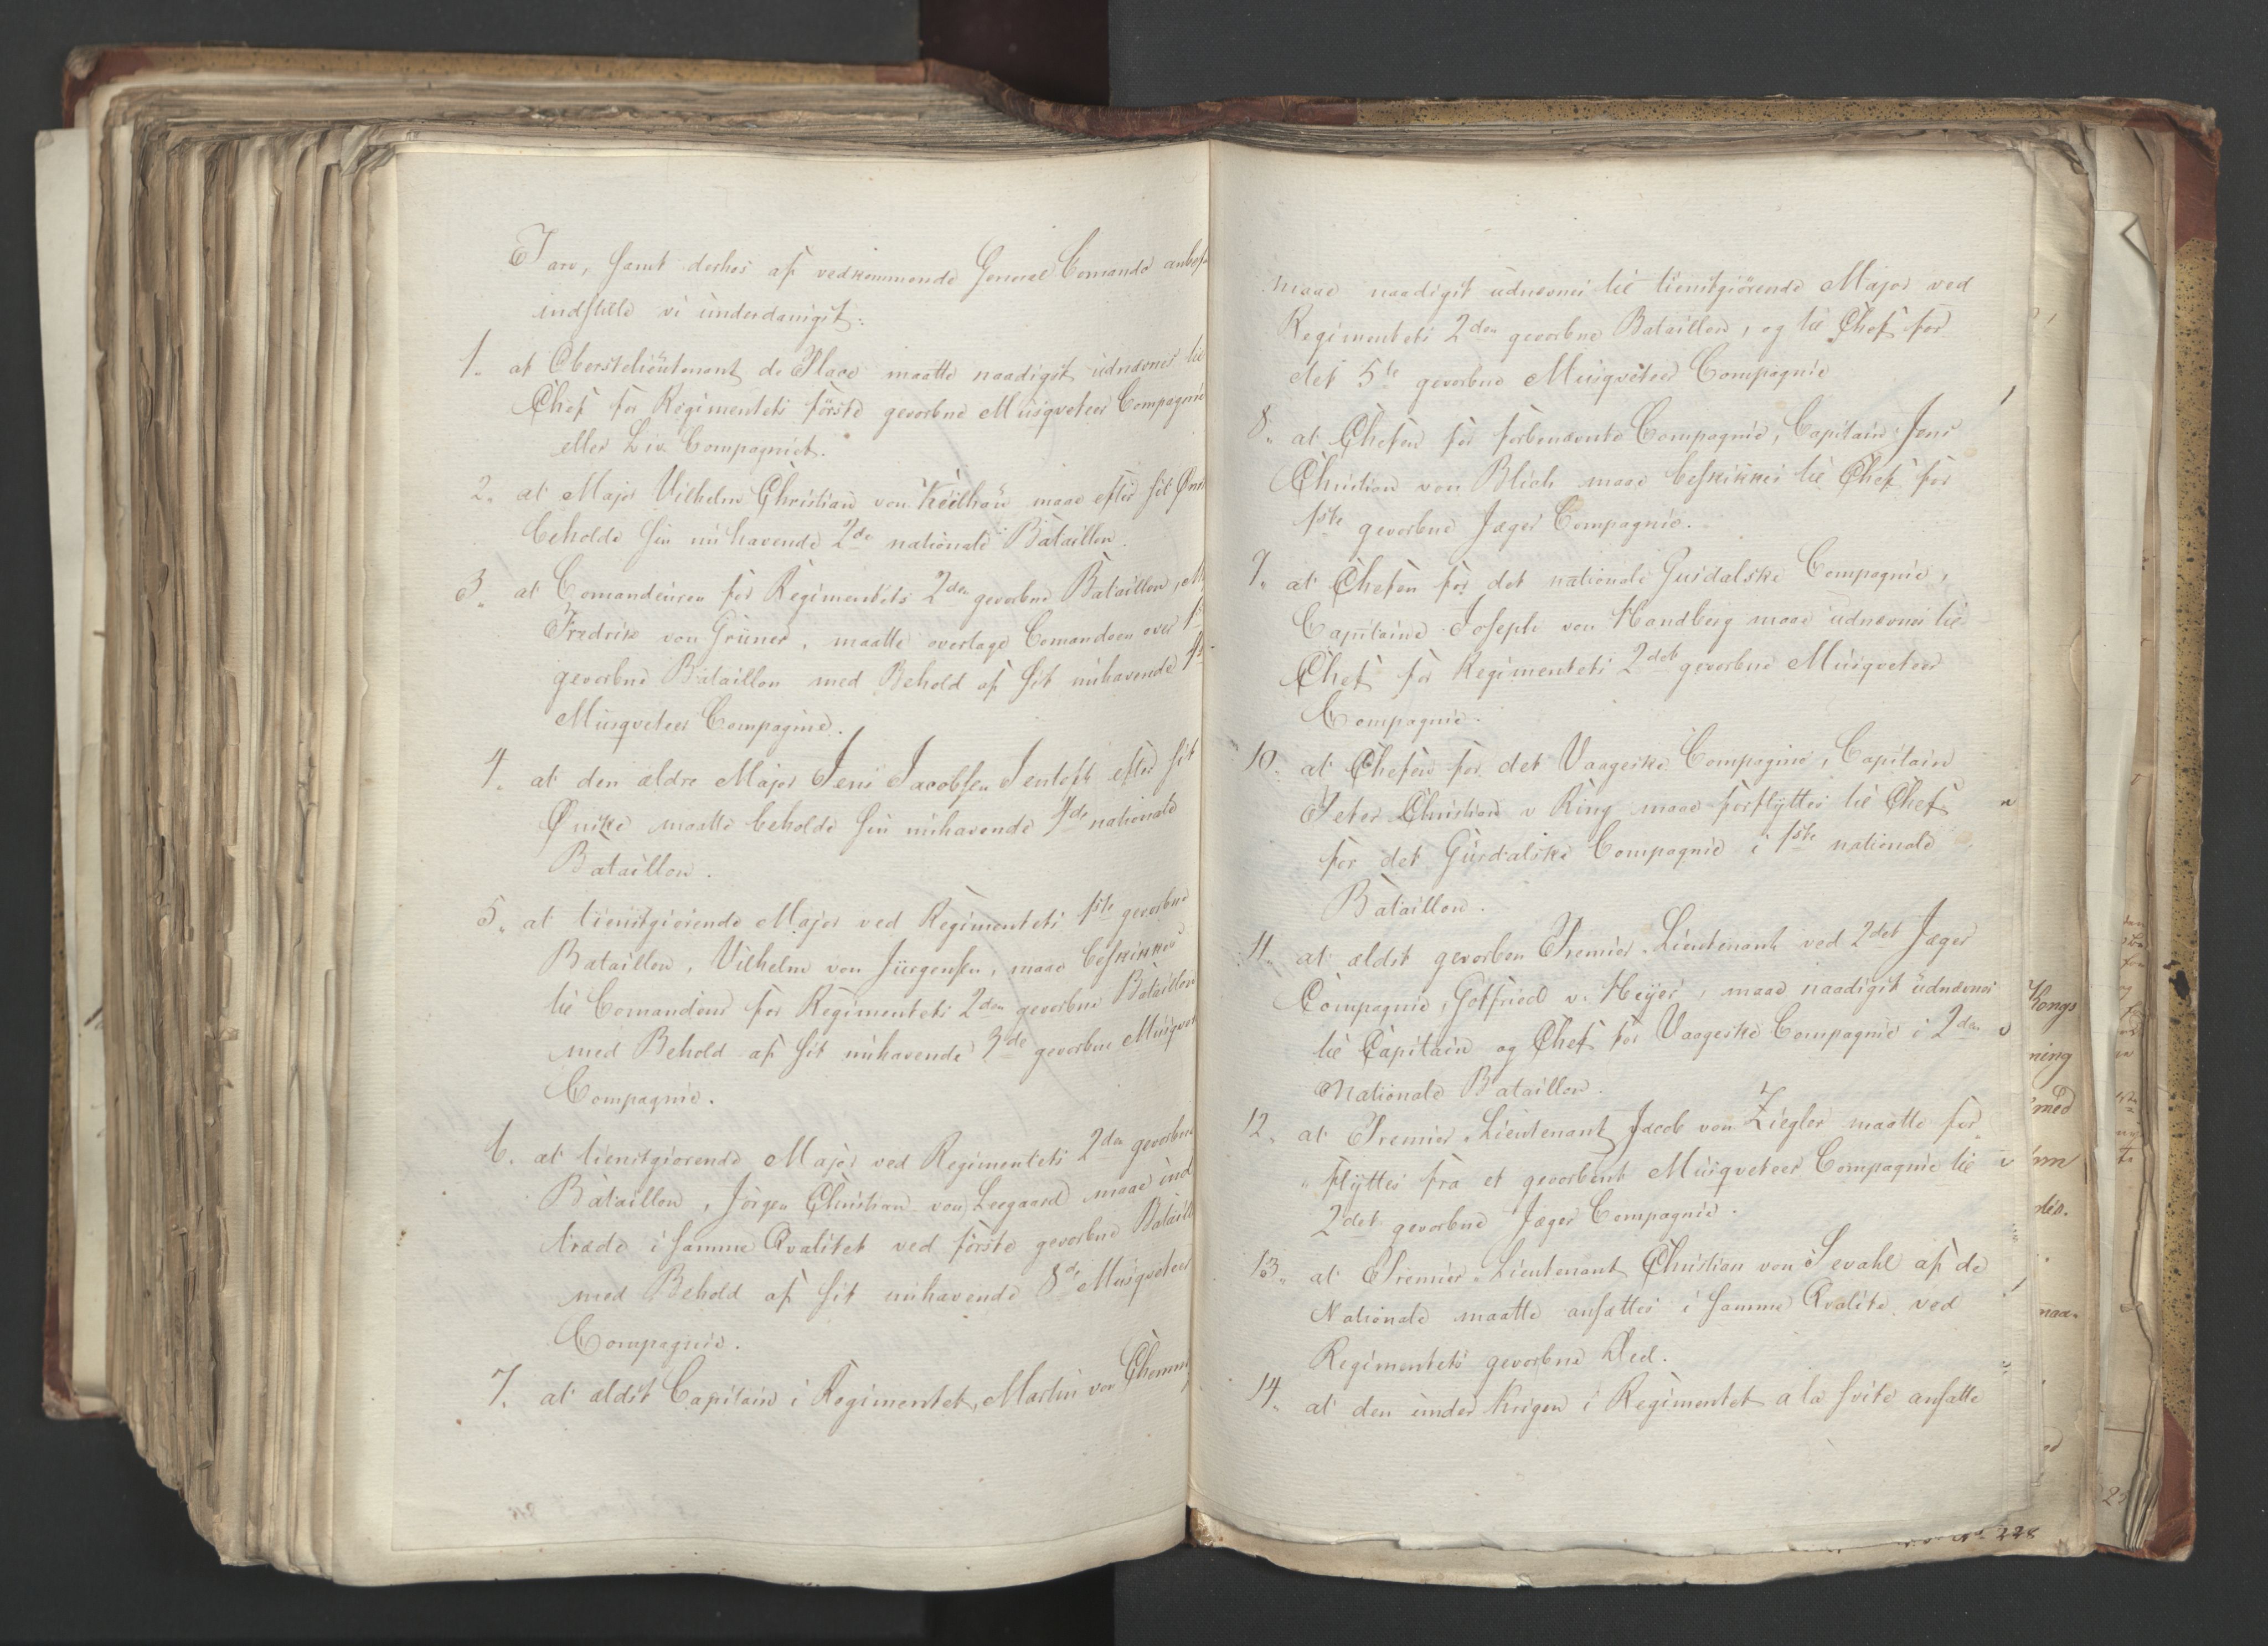 Tarv, samt derhos af vedkommende General Comando anbef
indstille vi underdanigst:
1. at Oberstelieutenant de Place maatte naadigst udnævnes til
Chef for Regimentets første gevorbne Musqveteer Compagnie
eller Liv Compagniet.
2. at Major Vilhelm Christian von Keilhau maae efter sit Ønsk
beholde sin nu havende 2de nationale Bataillon.
3. at Comandeuren for Regimentets 2den gevorbne Bataillon, M
Fredrik von Grüner, maatte overtage Comandoen over 1s
gevorbne Bataillon med Behold af sit nuhavende 4
Musqveteer Compagnie.
4. at den ældre Major Jens Jacobsen Jentoft efter sit
Ønske maatte beholde sin nuhavende 4de nationale
Bataillon.
5. at tienstgiørende Major ved Regimentets 1ste gevorbne
Bataillon, Vilhelm von Jürgensen, maae beskikkes
til Comandeur for Regimentets 2den gevorbne Bataillon
med Behold af sit nuhavende 3de gevorbne Musqvet
Compagnie.
6. at tienstgiørende Major ved Regimentets 2den gevorbne
Bataillon, Jørgen Christian von Leegaard maae ind
træde i samme Qvalitet ved første gevorbne Bataill
med Behold af sit nuhavende 8de Musqveteer
Compagnie.
7. at ældst Capitain i Regimentet, Martin von
maae naadigst udnævnes til tienstgiørende Major ved
Regimentets 2den gevorbne Bataillon, og til Chef for
det 5te gevorbne Musqveteer Compagnie
8. at Chefen for forbenævnte Compagnie, Capitain Jens
Christian von Blich maae beskikkes til Chef for
1ste gevorbne Jæger Compagnie.
9. at Chefen for det nationale Gusdalske Compagnie,
Capitaine Joseph von Handberg maae udnævnes til
Chef for Regimentets 2det gevorbne Musqveteer
Compagnie.
10. at Chefen for det Vaageske Compagnie, Capitain
Peter Christian v Ring maae forflyttes til Chef
for det Gusdalske Compagnie i 1ste nationale
Bataillon.
11. at ældst gevorben Premier Lieutenant ved 2det Jæger
Compagnie, Gotfried v. Heyer, maae naadigst udnævnes
til Capitain og Chef for Vaageske Compagnie i 2den
Nationale Bataillon.
12. at Premier Lieutenant Jacob von Ziegler maatte for¬
flyttes fra et gevorbent Musqveteer Compagnie til
2det gevorbne Jæger Compagnie.
13. at Premier Lieutenant Christian von Sevahl af de
Nationale maatte ansættes i samme Qvalite ved
Regimentets gevorbne Deel.
14. at den under Krigen i Regimentet a la svite ansatte
Kongs
ning
med
naa-